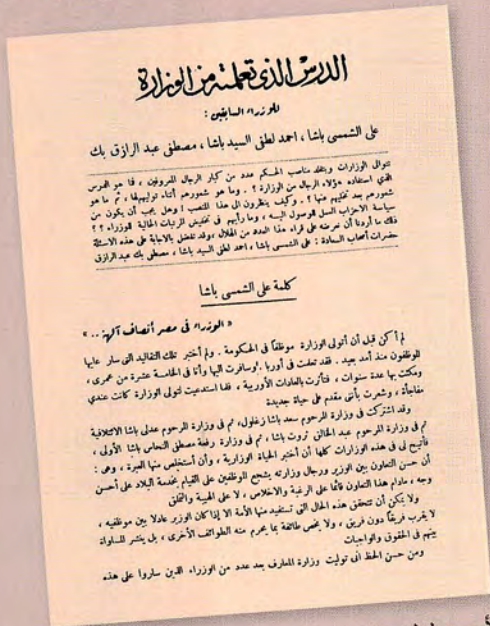 الدرس الذى تعلمته من الوزارة
للوزراء السابقين :
على الشمسى باشا ، احمد لطفى السيد باشا ، مصطفى عبد الرازق بك
تتوالى الوزارات ويتقلد مناصب الحكم عدد من كبار الرجال المعروفين ، فما هو الدرس
الذي استفاده هؤلاء الرجال من الوزارة ؟ . وما هو شعورهم أثناء توليهم لها ، ثم ما هو
شعورهم بعد تخليهم عنها ؟ . وكيف ينظرون الى هذا المنصب ! وهل يجب أن يكون من
سياسة الأحزاب العمل للوصول اليه ، وما رأيهم فى تخفيض المرتبات الحالية للوزراء ؟ ؟
ذلك ما أردنا أن نعرضه على قراء هذا العدد من الهلال ، وقد تفضل بالاجابة على هذه الاسئلة
حضرات أصحاب السعادة : على الشمسى باشا ، احمد لطفى السيد باشا ، مصطفى بك عبد الرازق
كلمة على الشمسى باشا
« الوزراء فى مصر أنصاف آلهة .. »
لم أكن قبل أن أتولى الوزارة موظفاً فى الحكومة . ولم أختبر تلك التقاليد التى سار عليها
الموظفون منذ أمد بعيد . فقد تعلمت فى أوربا . وسافرت اليها وأنا فى الخامسة عشرة من عمرى ،
ومكثت بها عدة سنوات ، فتأثرت بالعادات الأوربية ، فلما استدعيت لتولى الوزارة كانت عندى
مفاجأة ، وشعرت بأننى مقدم على حياة جديدة
وقد اشتركت فى وزارة المرحوم سعد باشا زغلول ، ثم فى وزارة المرحوم عدلى باشا الائتلافية
ثم فى وزارة المرحوم عبد الخالق ثروت باشا ، ثم فى وزارة رفعة مصطفى النحاس باشا الأولى ،
فأتيح لى فى هذه الوزارات كلها أن أختبر الحياة الوزارية ، وأن أستخلص منها العبرة ، وهى :
أن حسن التعاون بين الوزير ورجال وزارته يشجع الموظفين على القيام بخدمة البلاد على أحسن
وجه ، مادام هذا التعاون قائماً على الرغبة والاخلاص ، لا على الهيبة والتملق
ولا يمكن أن تتحقق هذه الحال التى تستفيد منها الأمة الا إذا كان الوزير عادلا بين موظفيه ،
لا يقرب فريقاً دون فريق ، ولا يخص طائفة بما يحرم منه الطوائف الأخرى ، بل ينشر المساواة
بينهم فى الحقوق والواجبات
ومن حسن الحظ انى توليت وزارة المعارف بعد عدد من الوزراء الذين ساروا على هذه